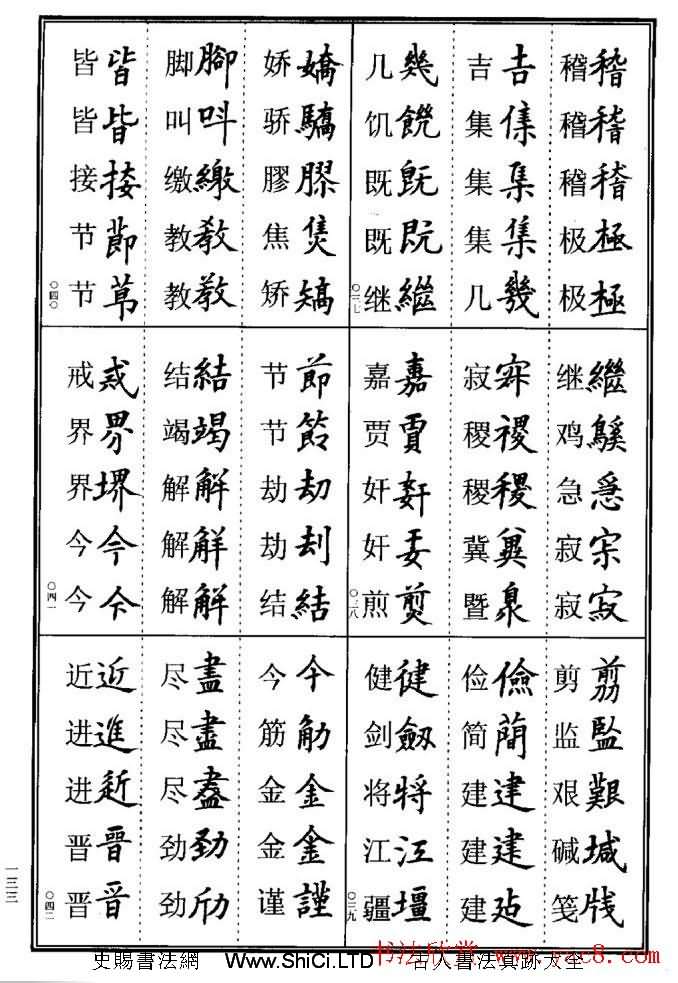 稽稽 稽稽 稽稽 极極 极極
吉吉 集集 集集 集集 几幾
几幾 饥饑 既既 既既 继繼
〇三七
继繼 鸡鷄 急急 寂寂 寂寂
寂寂 稷稷 稷稷 冀冀 暨暨
嘉嘉 贾賈 奸姧 奸奸 煎煎
〇三八
剪剪 监監 艰艱 碱堿 笺牋
俭儉 简簡 建建 建建 建建
健健 剑劔 将将 江江 疆壃
〇三九
娇嬌 骄驕 膠膠 焦焦 矫矯
脚腳 叫叫 缴繳 教教 教教
皆皆 皆皆 接接 节節 节节
〇四〇
节節 节節 劫劫 劫刦 结結
结結 竭竭 解解 解解 解解
戒戒 界界 界堺 今今 今今
〇四一
今今 筋筋 金金 金金 谨謹
尽盡 尽盡 尽盡 劲勁 劲劲
近近 进進 进进 晋晉 晋晋
〇四二
一三三
史賜書法網 Www.ShiCi.LTD 古人書法真跡大全
书法欣赏 www.yac8.com